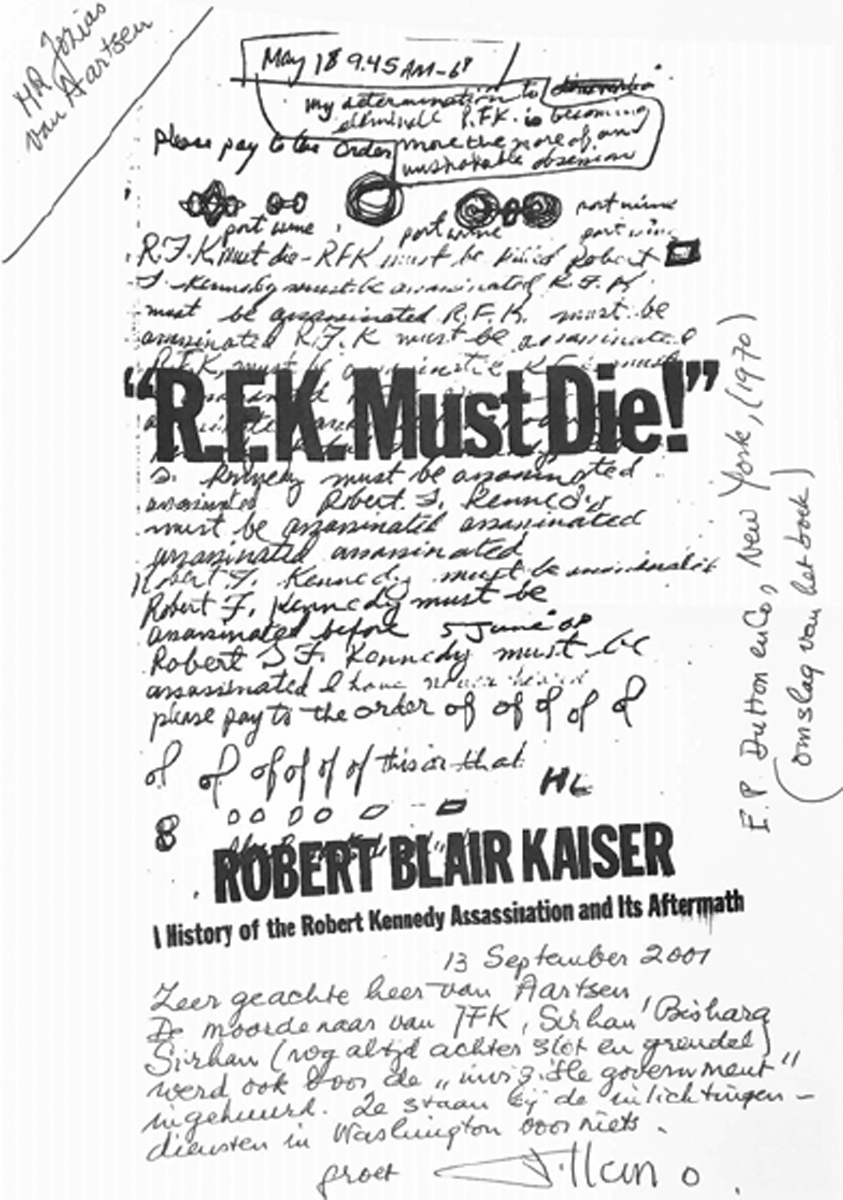 HR Jozias
van Aartsen
May 18 9.45 AM-68
my determination to
eliminate R.F.K. is becoming
please pay to the order
more the more of an
unshakable obsession
port wine
port wine
port wine
port wine
R.F.K. must die - RFK must be killed Robert
F. Kennedy must be assassinated R.F.K.
must be assassinated R.F.K. must be
assassinated R.F.K must be assassinated
R.F.K. must be
"R.F.K. Must Die!"
F. Kennedy must be assassinated
assassinated Robert F. Kennedy
must be assassinated assassinated
assassinated assassinated
Robert F. Kennedy must be assassinated
Robert F. Kennedy must be
assassinated before 5 June 68
Robert F. Kennedy must be
assassinated I have never heard
please pay to the order of of of of of
of of of of of of this or that
8
ROBERT BLAIR KAISER
A History of the Robert Kennedy Assassination and Its Aftermath
E.P. Dutton en Co, New York, (1970)
(omslag van het boek)
13 September 2001
Zeer geachte heer van Aartsen
De moordenaar van JFK, Sirhan Bishara
Sirhan (nog altijd achter slot en grendel)
werd ook door de „invisible government"
ingehuurd. Ze staan bij de inlichtingen-
diensten in Washington voor niets.
groet